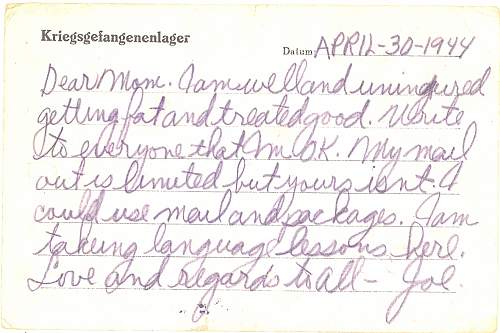 Kriegsgefangenenlager
Datum: APRIL-30-1944
Dear Mom. I am well and uninjured
getting fat and treated good. Write
to everyone that Im OK. My mail
out is limited but yours isnt. I
could use mail and packages. I am
taking language lessons here.
Love and regards to all - Joe.